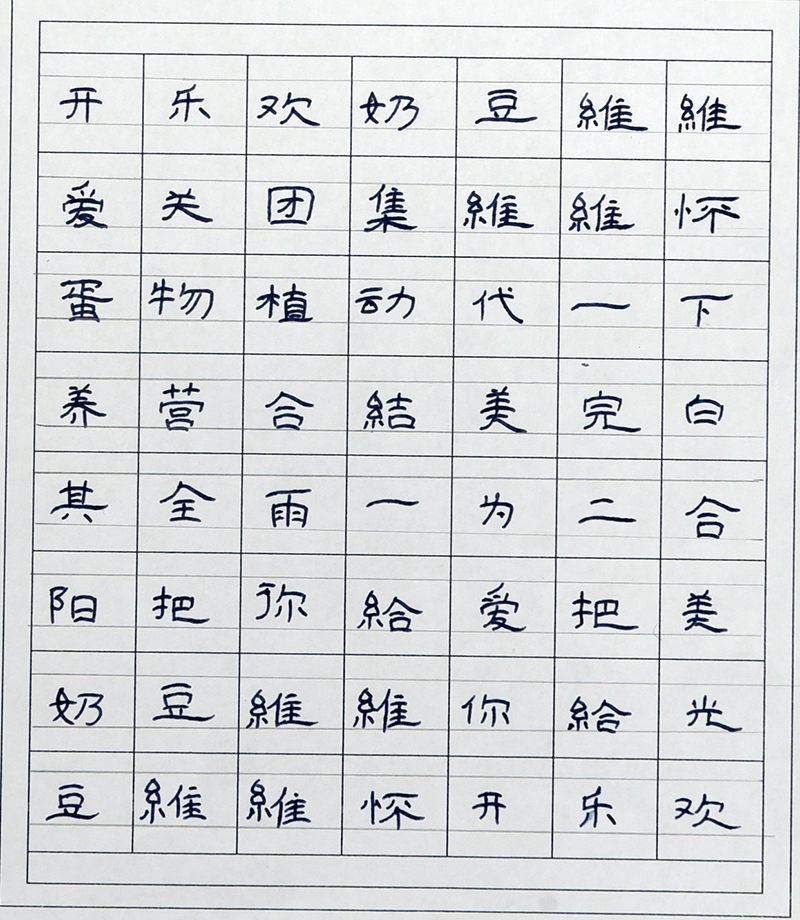 維維豆奶欢乐开
怀維維集团关爱
下一代动植物蛋
白完美結合营养
合二为一雨全其
美把爱給你把阳
光給你維維豆奶
欢乐开怀維維豆